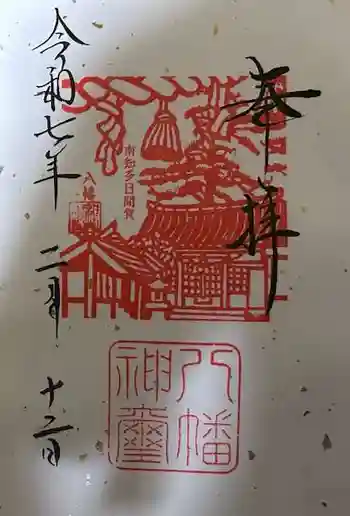 奉拝
南知多日間賀
八幡
八幡
神璽
令和七年
二月
十二日